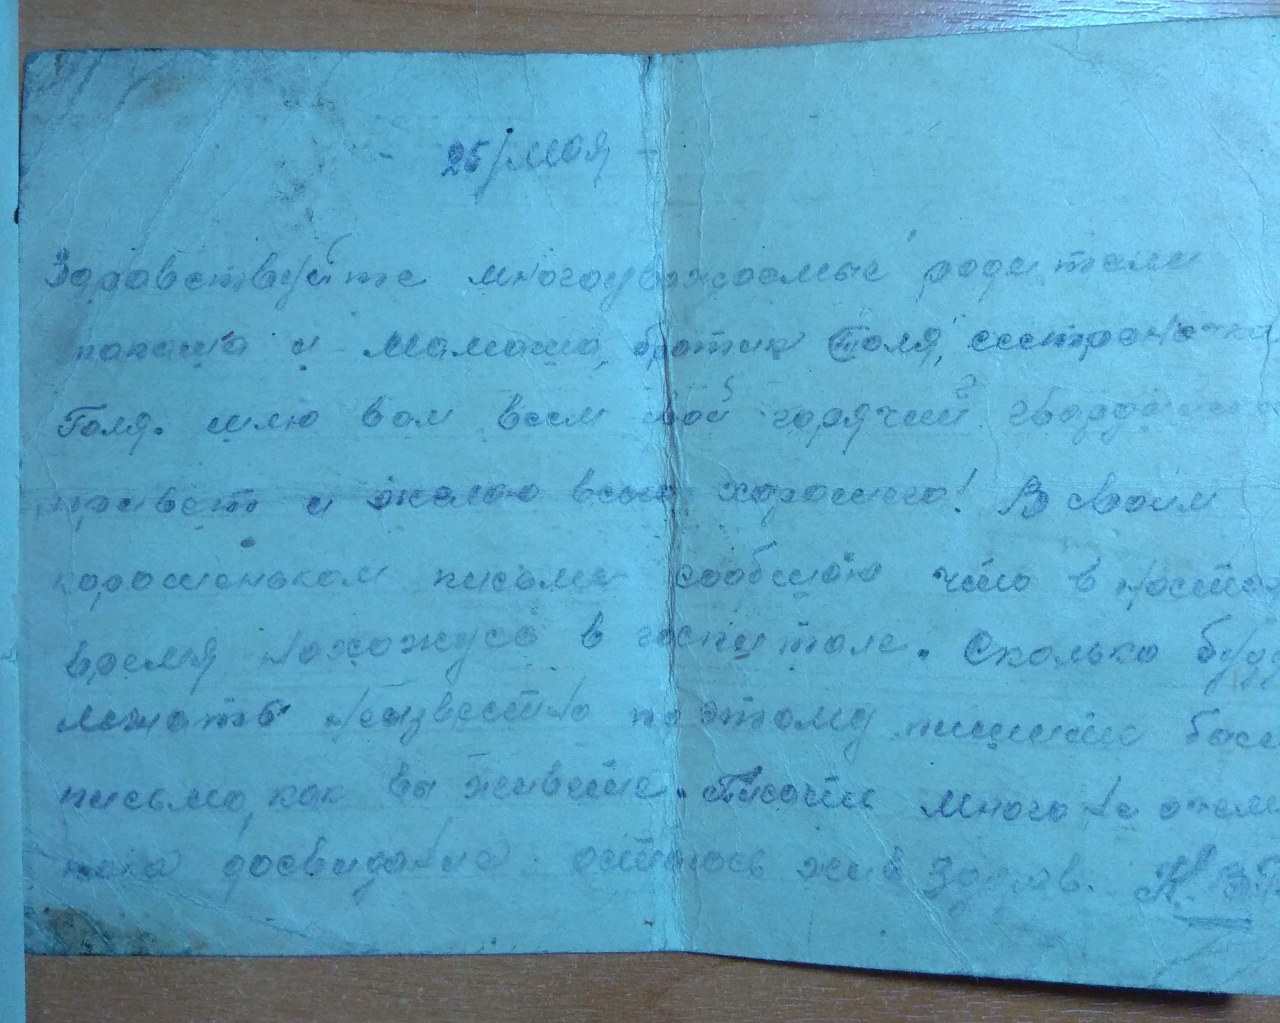 25/мая
Здравствуйте многоуважаемые родители
папаша и Мамаша, братик Толя, сестреночка
Галя. шлю вам всем свой горячий гвардейский
привет и желаю всего хорошего! В своим
коротеньком письме сообщаю что в настоя
время нахожусь в госпитале. Сколько буду
лежать неизвестно поэтому пишите
письмо, как вы живете. Писать много не
пока досвидание. остаюсь жив здоров.